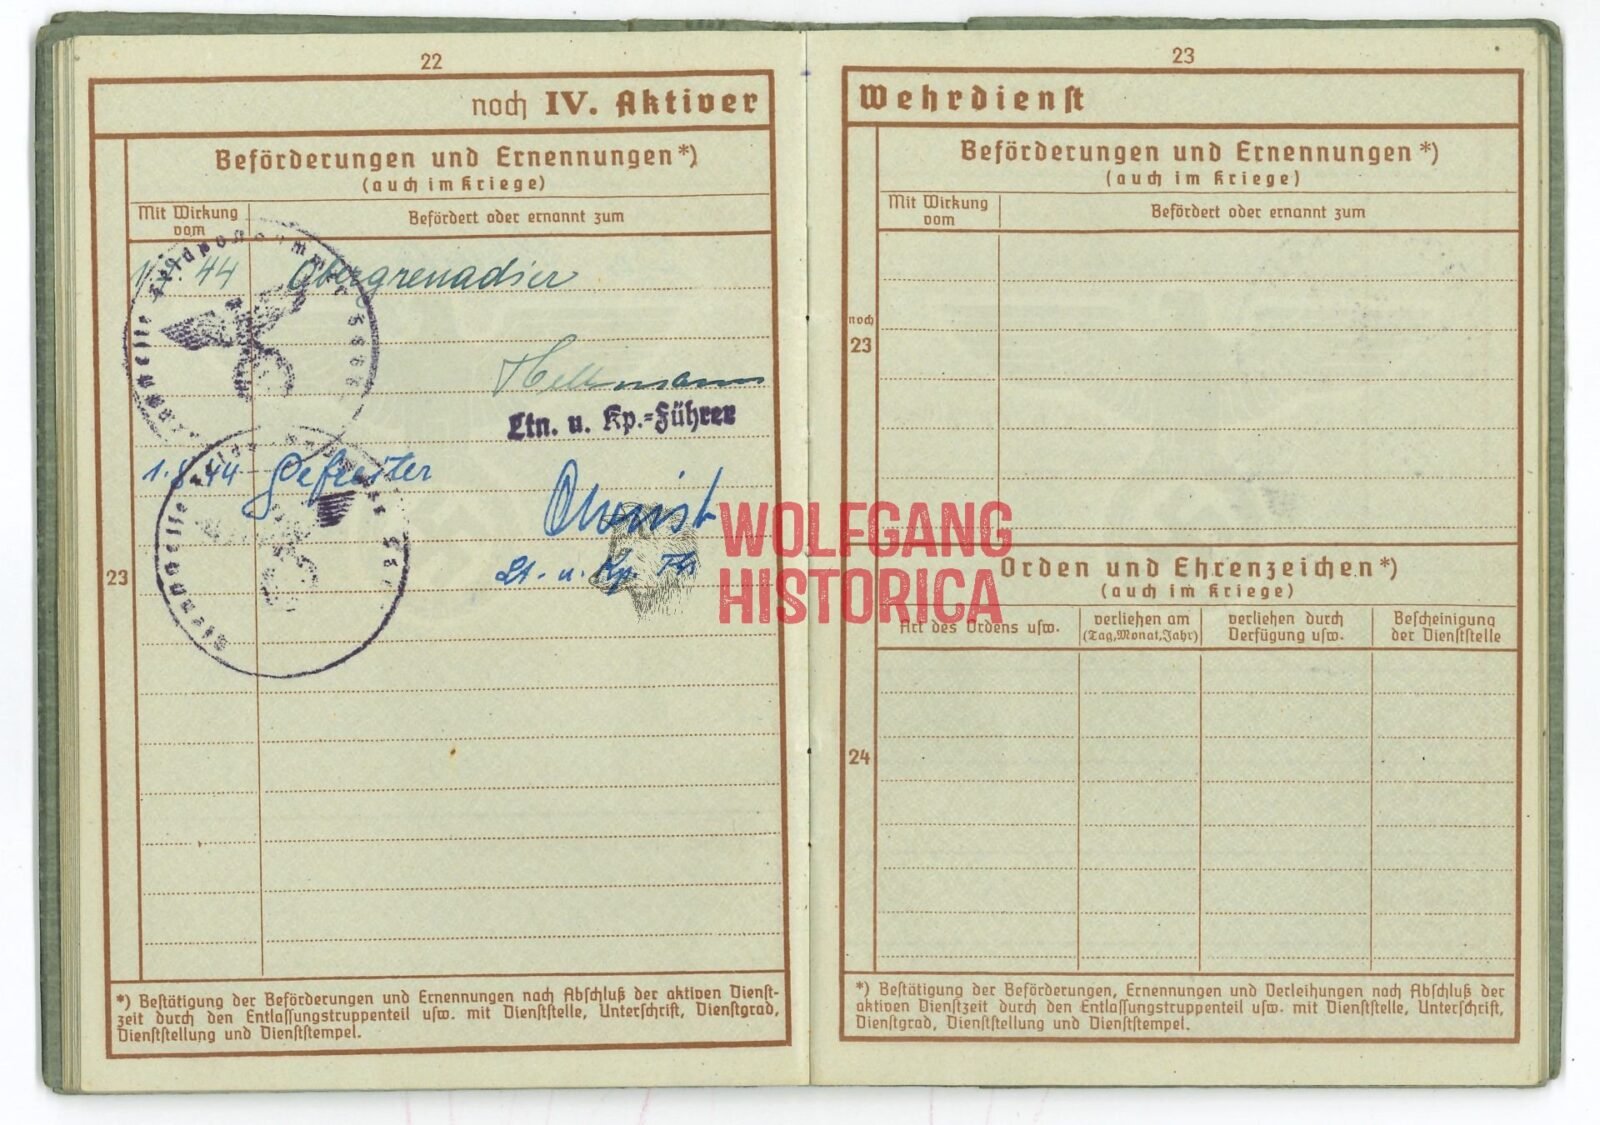 22
noch IV. Aktiver
Beförderungen und Ernennungen*)
(auch im Kriege)
Mit Wirkung
vom
Befördert oder ernannt zum
44 Obergrenadier
Ltn. u. Kp.=Führer
1.8.44 Gefreiter
Lt. u. Kp. Fhr
23
*) Bestätigung der Beförderungen und Ernennungen nach Abschluß der aktiven Dienst-
zeit durch den Entlassungstruppenteil usw. mit Dienststelle, Unterschrift, Dienstgrad,
Dienststellung und Dienststempel.
Dienststelle Feldpostnummer
Dienststelle
WOLFGANG
HISTORICA
23
Wehrdienst
Beförderungen und Ernennungen*)
(auch im Kriege)
Mit Wirkung
vom
Befördert oder ernannt zum
noch
23
Orden und Ehrenzeichen*)
(auch im Kriege)
Art des Ordens usw.
verliehen am
(Tag, Monat, Jahr)
verliehen durch
Verfügung usw.
Bescheinigung
der Dienststelle
24
*) Bestätigung der Beförderungen, Ernennungen und Verleihungen nach Abschluß der
aktiven Dienstzeit durch den Entlassungstruppenteil usw. mit Dienststelle, Unterschrift,
Dienstgrad, Dienststellung und Dienststempel.